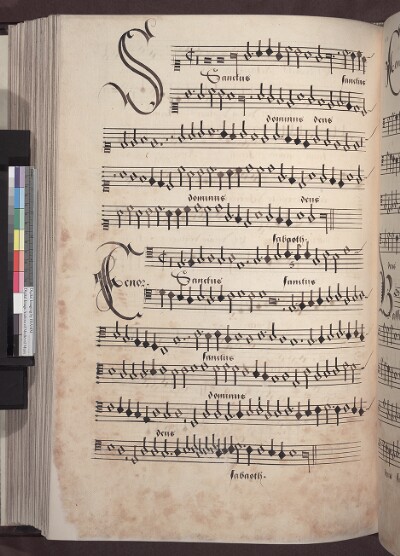 S
Sanctus sanctus
dominus deus
dominus deus
sabaoth.
Tenor. Sanctus sanctus
sanctus
dominus
deus
sabaoth.